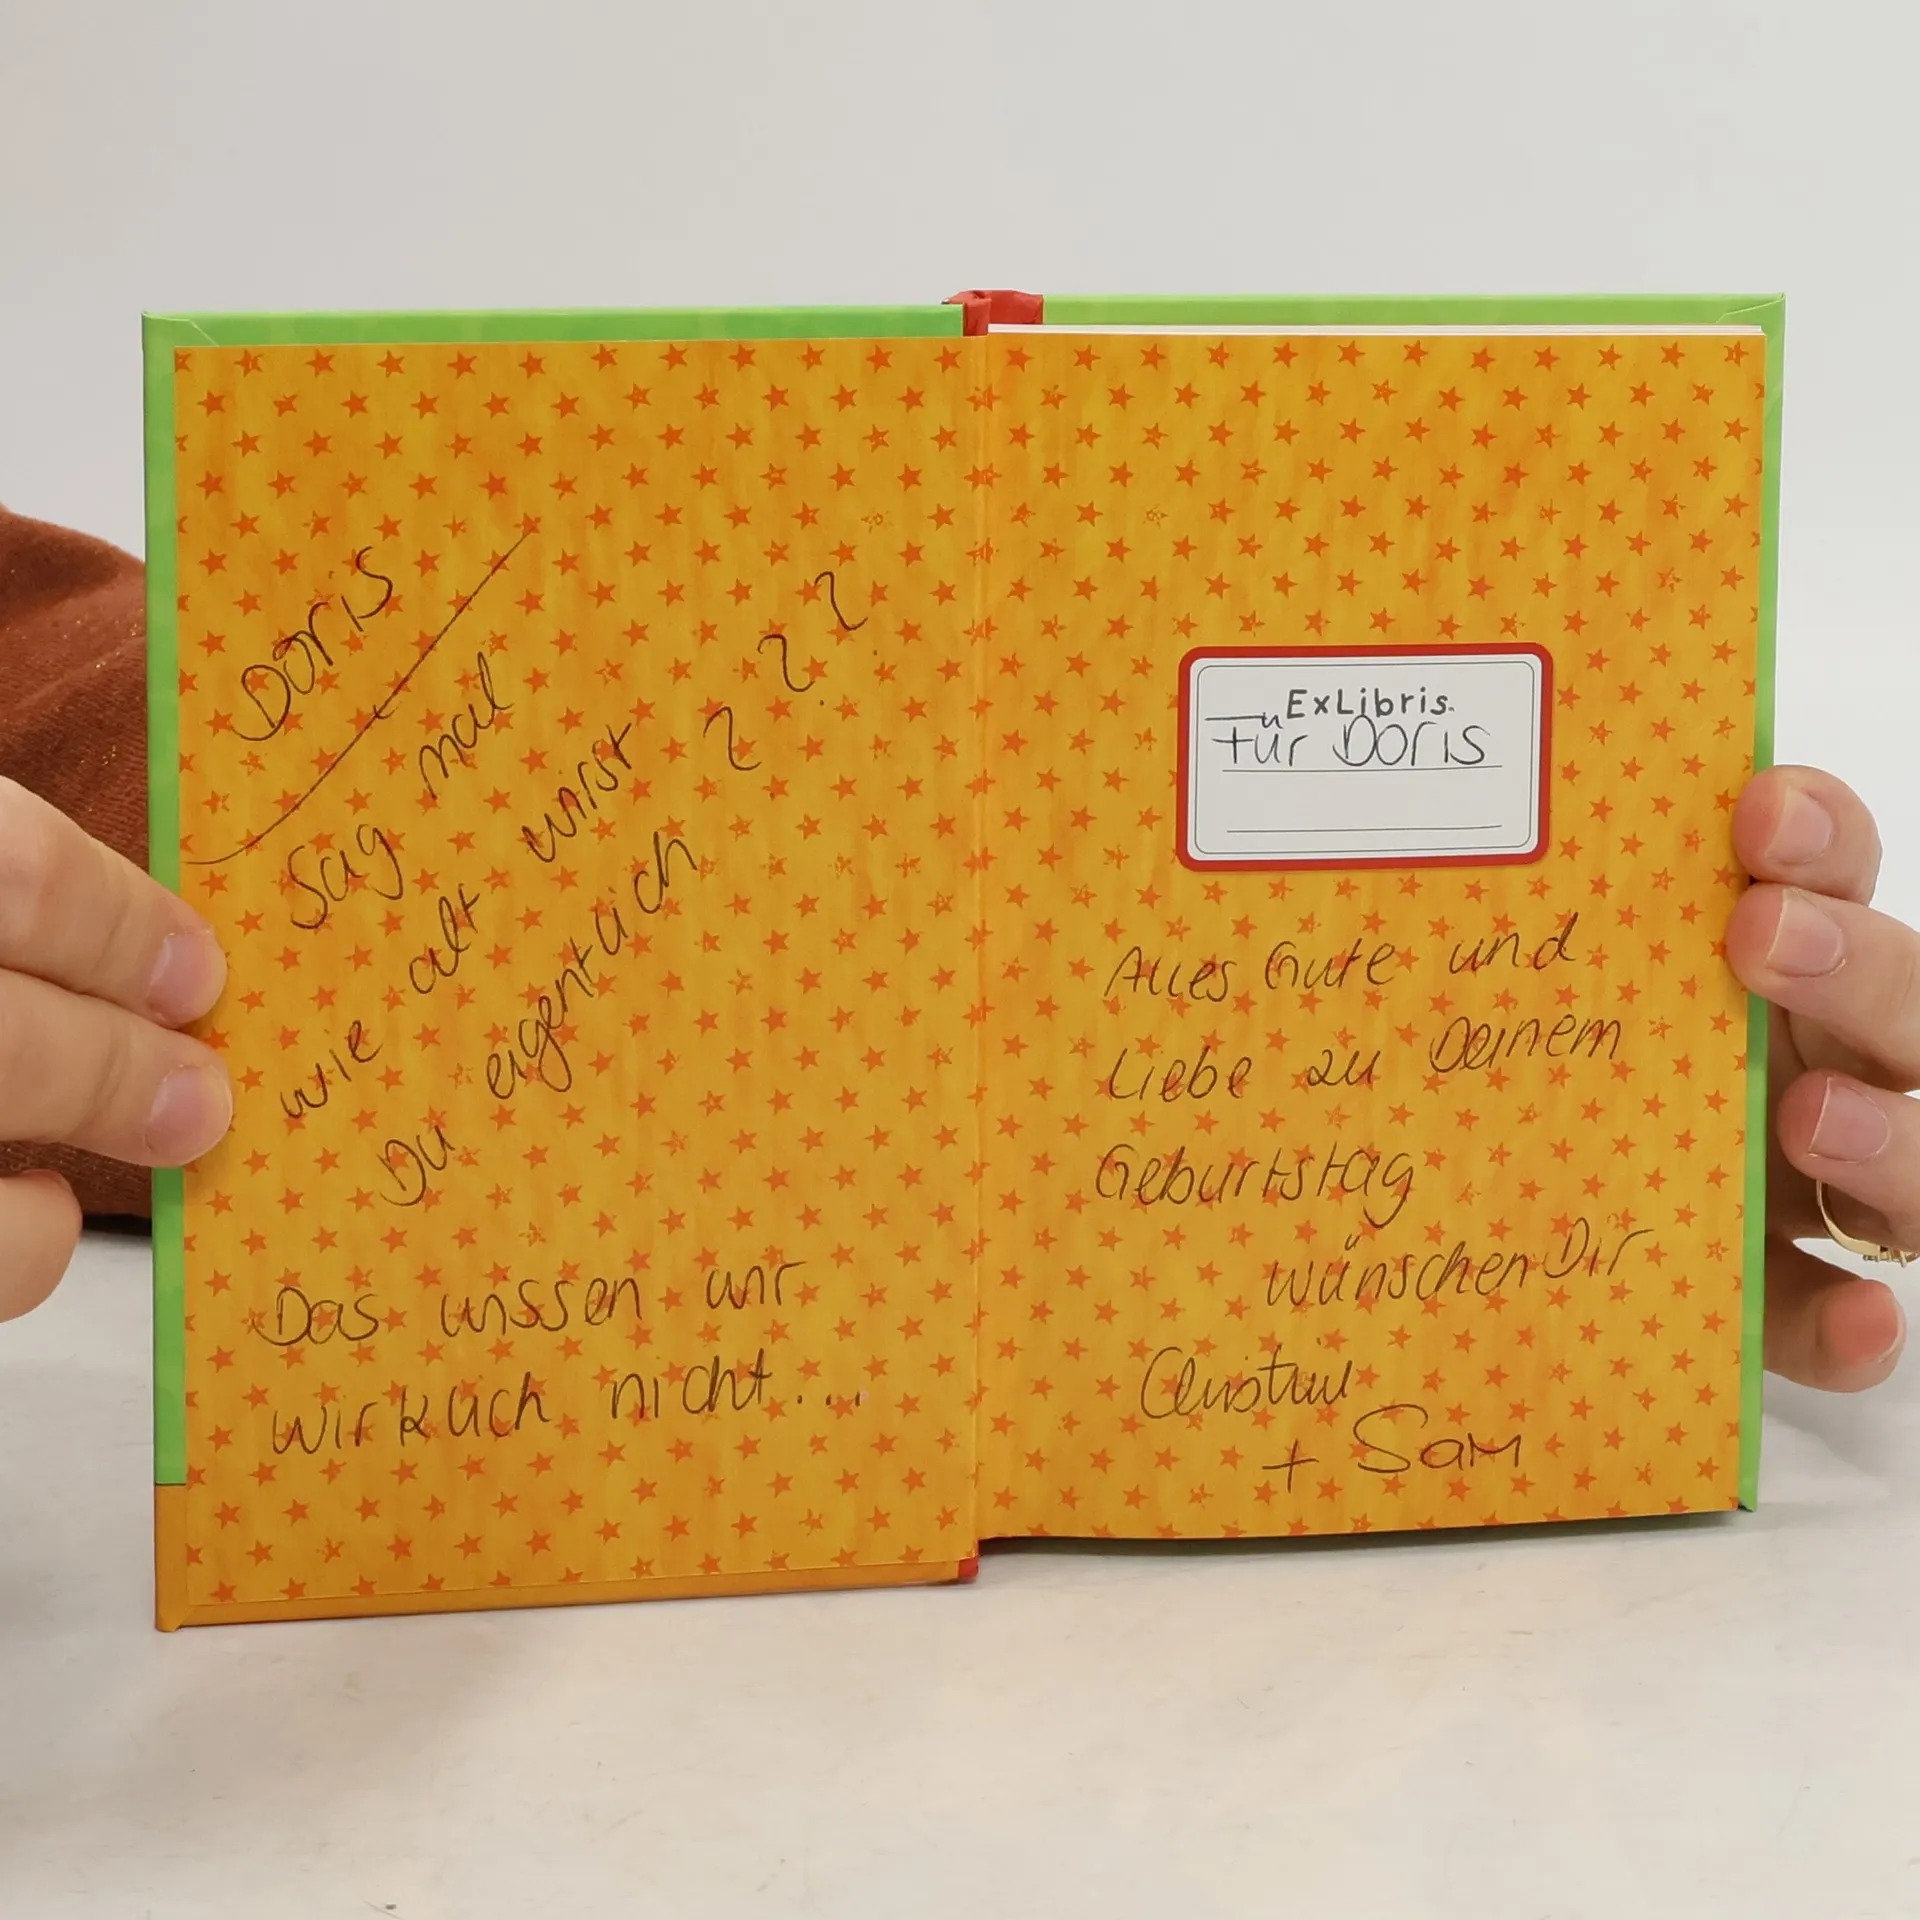 Doris
Sag mal
wie alt wirst
Du eigentlich ? ? ?
Das wissen wir
wirklich nicht...
ExLibris
Für Doris
Alles Gute und
Liebe zu Deinem
Geburtstag
wünschen Dir
+ Sam